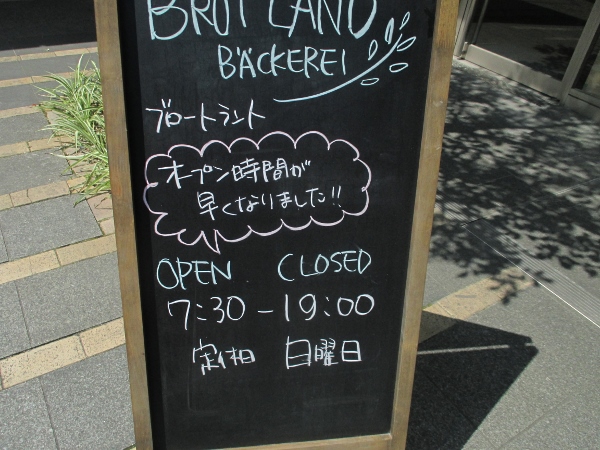 BROT LAND
BÄCKEREI
ブロートラント
オープン時間が
早くなりました!!
OPEN CLOSED
7:30-19:00
定休 日曜日